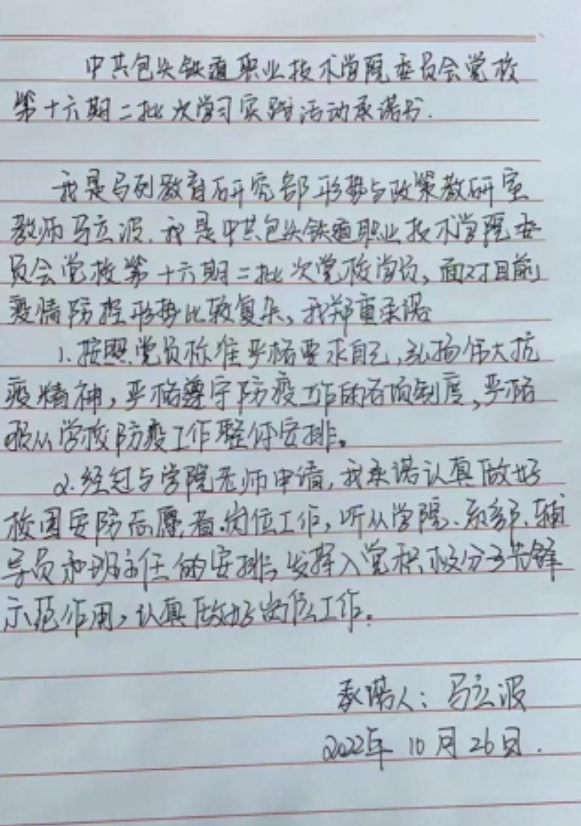 中共包头铁道职业技术学院委员会党校
第十六期二批次学习实践活动承诺书.
我是马列教育研究部形势与政策教研室
教师马立波.我是中共包头铁道职业技术学院委
员会党校第十六期二批次党校学员,面对目前
疫情防控形势比较复杂,我郑重承诺
1.按照党员标准严格要求自己,弘扬伟大抗
疫精神,严格遵守防疫工作的各项制度,严格
服从学校防疫工作整体安排。
2.经过与学院老师申请,我承诺认真做好
校园安防志愿者岗位工作,听从学院、系部、辅
导员和班主任的安排,发挥入党积极分子先锋
示范作用,认真做好岗位工作。
承诺人:马立波
2022年10月26日.